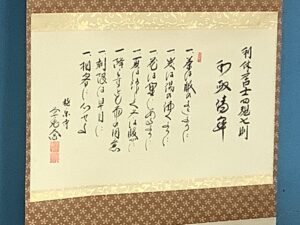 利休居士四規七則
和敬清寂
一茶は服のよきように
一炭は湯の沸くように
一花は野にあるように
一夏は涼しく冬は暖に
一降らずとも雨の用意
一刻限は早目に
一相客に心せよ